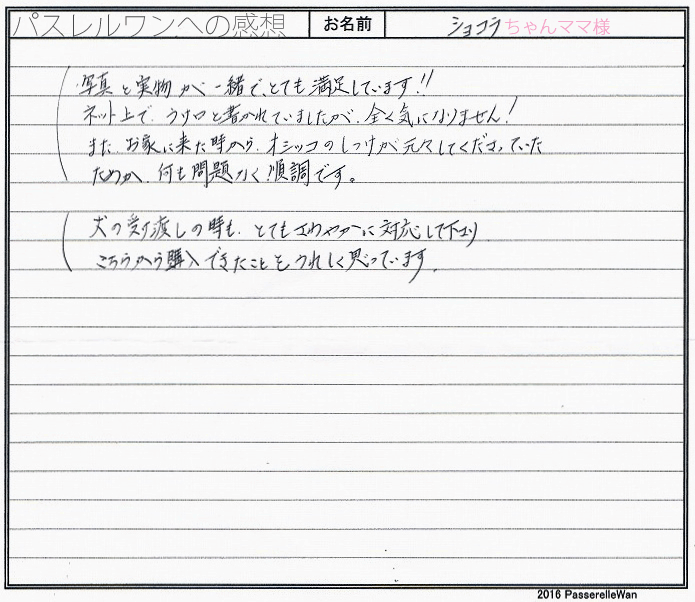 パスレルワンへの感想 お名前 ショコラちゃんママ様
写真と実物が一緒で、とても満足しています!!
ネット上で、うけ口と書かれていましたが、全く気になりません!
また、お家に来た時から、オシッコのしつけが元々してくださっていた
ためか、何も問題なく順調です。
犬の受け渡しの時も、とてもさわやかに対応して下さり
こちらから購入できたことをうれしく思っています。
2016 PasserelleWan